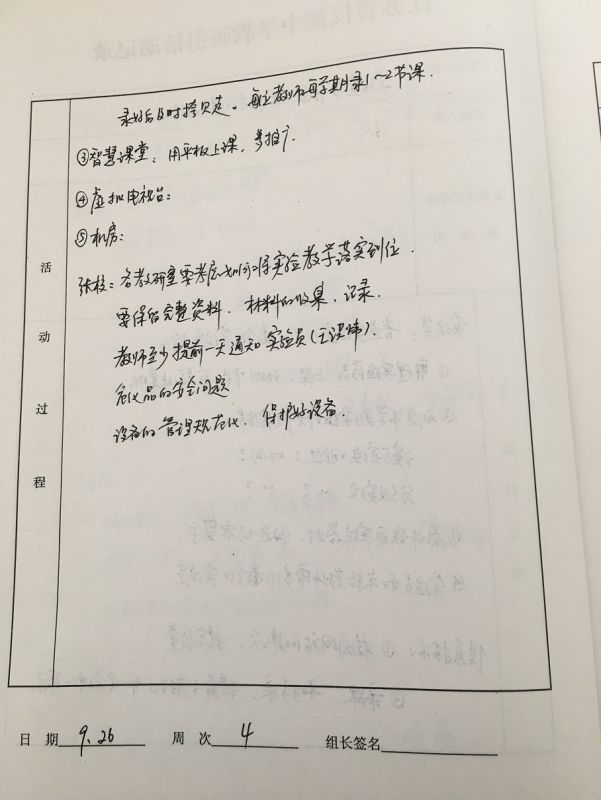 录好后及时拷贝走。每位教师每学期录1~2节课.
③智慧课堂：用平板上课，多推广.
④虚拟电视台：
⑤机房：
张校：各教研室要考虑如何将实验教学落实到位.
要保留完整资料. 材料的收集、记录.
教师至少提前一天通知实验员(王
危化品的安全问题
设备的管理规范化. 保护好设备.
活
动
过
程
日 期 9.26 周 次 4 组长签名